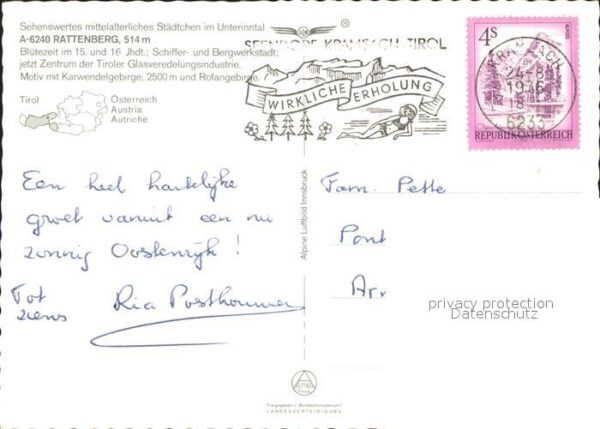 Sehenswertes mittelalterliches Städtchen im Unterinntal
A-6240 RATTENBERG, 514 m
Blütezeit im 15. und 16 Jhdt.; Schiffer- und Bergwerkstadt;
jetzt Zentrum der Tiroler Glasveredelungsindustrie.
Motiv mit Karwendelgebirge, 2500 m und Rofangebirge.
Tirol
Österreich
Austria
Autriche
SEENDORF KRAMSACH TIROL
WIRKLICHE ERHOLUNG
4S
REPUBLIK ÖSTERREICH
KRAMSACH
24-8
18
6233
Een heel hartelijke
groet vanuit een nu
zonnig Oostenrijk!
Tot
ziens
Ria Posthouwer
Alpine Luftbild Innsbruck
Fam. Pette
Pont
Arr
privacy protection
Datenschutz
Freigegeben v. Bundesministerium f.
LANDESVERTEIDIGUNG